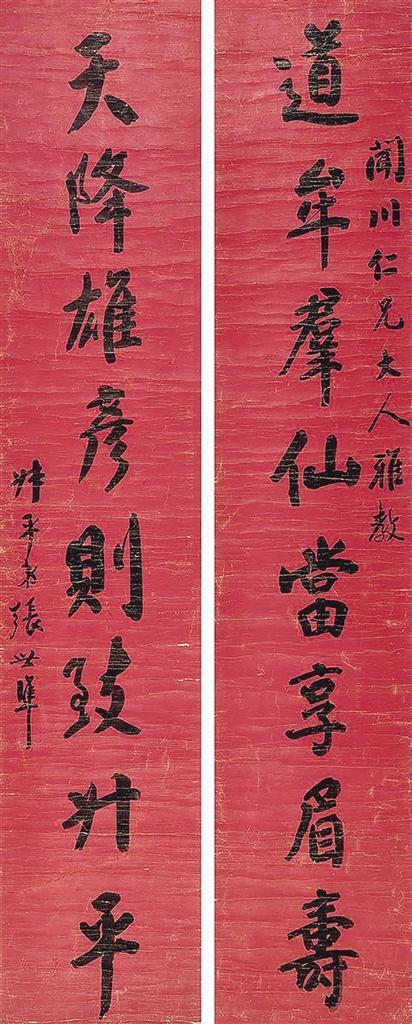 聞川仁兄大人雅教
道牟羣仙當享眉壽
天降雄彥則致升平
叔平弟張世準